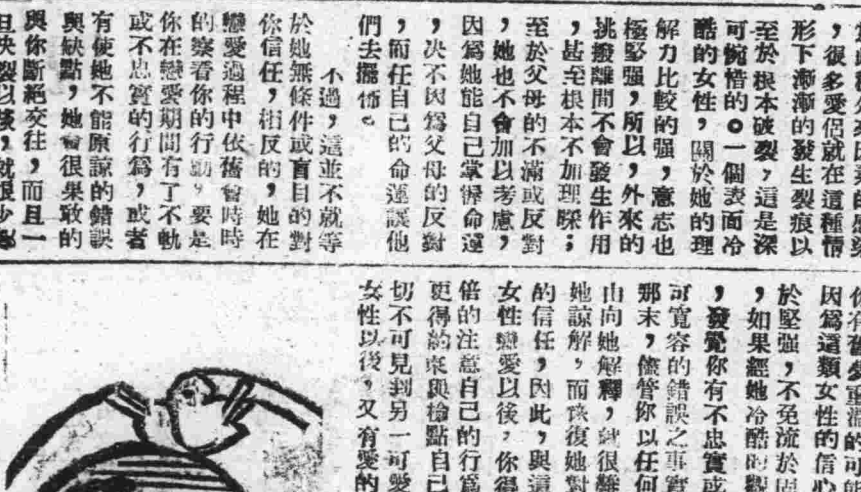 ，很多愛侶就在這種情
形下漸漸的發生裂痕以
至於根本破裂，這是深
可惋惜的。一個表面冷
酷的女性，關於她的理
解力比較的强，意志也
極堅强，所以，外來的
挑撥離間不會發生作用
，甚至根本不加理睬；
至於父母的不滿或反對
，她也不會加以考慮，
因爲她能自己掌握命運
，决不因爲父母的反對
，而任自己的命運讓他
們去擺佈。
不過，這並不就等
於她無條件或盲目的對
你信任，相反的，她在
戀愛過程中依舊會時時
的察看你的行動，要是
你在戀愛期間有了不軌
或不忠實的行爲，或者
有使她不能原諒的錯誤
與缺點，她會很果敢的
與你斷絕交往，而且一
因爲這類女性的信心
於堅强，不免流於固
，如果經她冷酷的觀
，發覺你有不忠實或
可寬容的錯誤之事實
那末，儘管你以任何
由向她解釋，就很難
她諒解，而恢復她對
的信任，因此，與這
女性戀愛以後，你得
倍的注意自己的行爲
更得約束與檢點自己
切不可見到另一可愛
女性以後，又有愛的